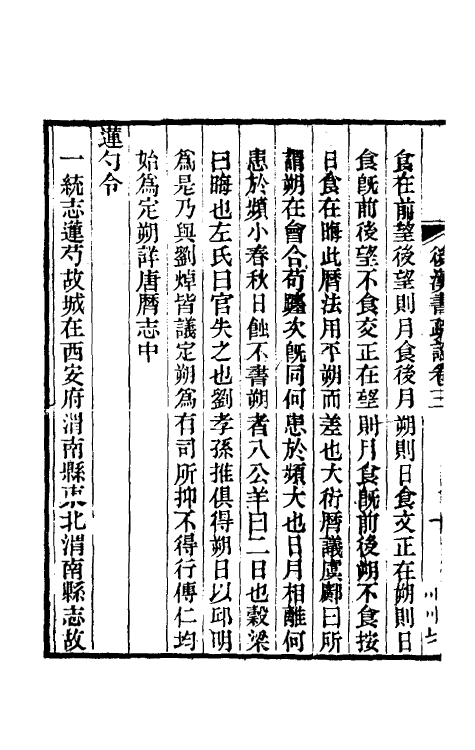 後漢書疏證卷三
食在前望後望則月食後月朔則日食交正在朔則日
食既前後望不食交正在望則月食既前後朔不食按
日食在晦此曆法用平朔而差也大衍曆議虞𠠎曰所
謂朔在會合苟躔次既同何患於頻大也日月相離何
患於頻小春秋日蝕不書朔者八公羊曰二日也穀梁
曰晦也左氏曰官失之也劉孝孫推俱得朔日以邱明
為是乃與劉焯皆議定朔為有司所抑不得行傅仁均
始為定朔詳唐曆志中
蓮勺令
一統志蓮芍故城在西安府渭南縣東北渭南縣志故